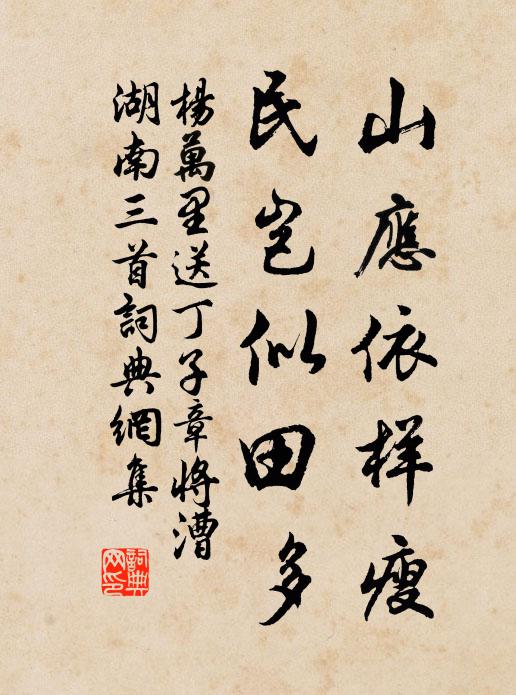 山應依样瘦
民岂似田多
楊萬里送丁子章将漕
湖南三首詞典網集
詞典网印